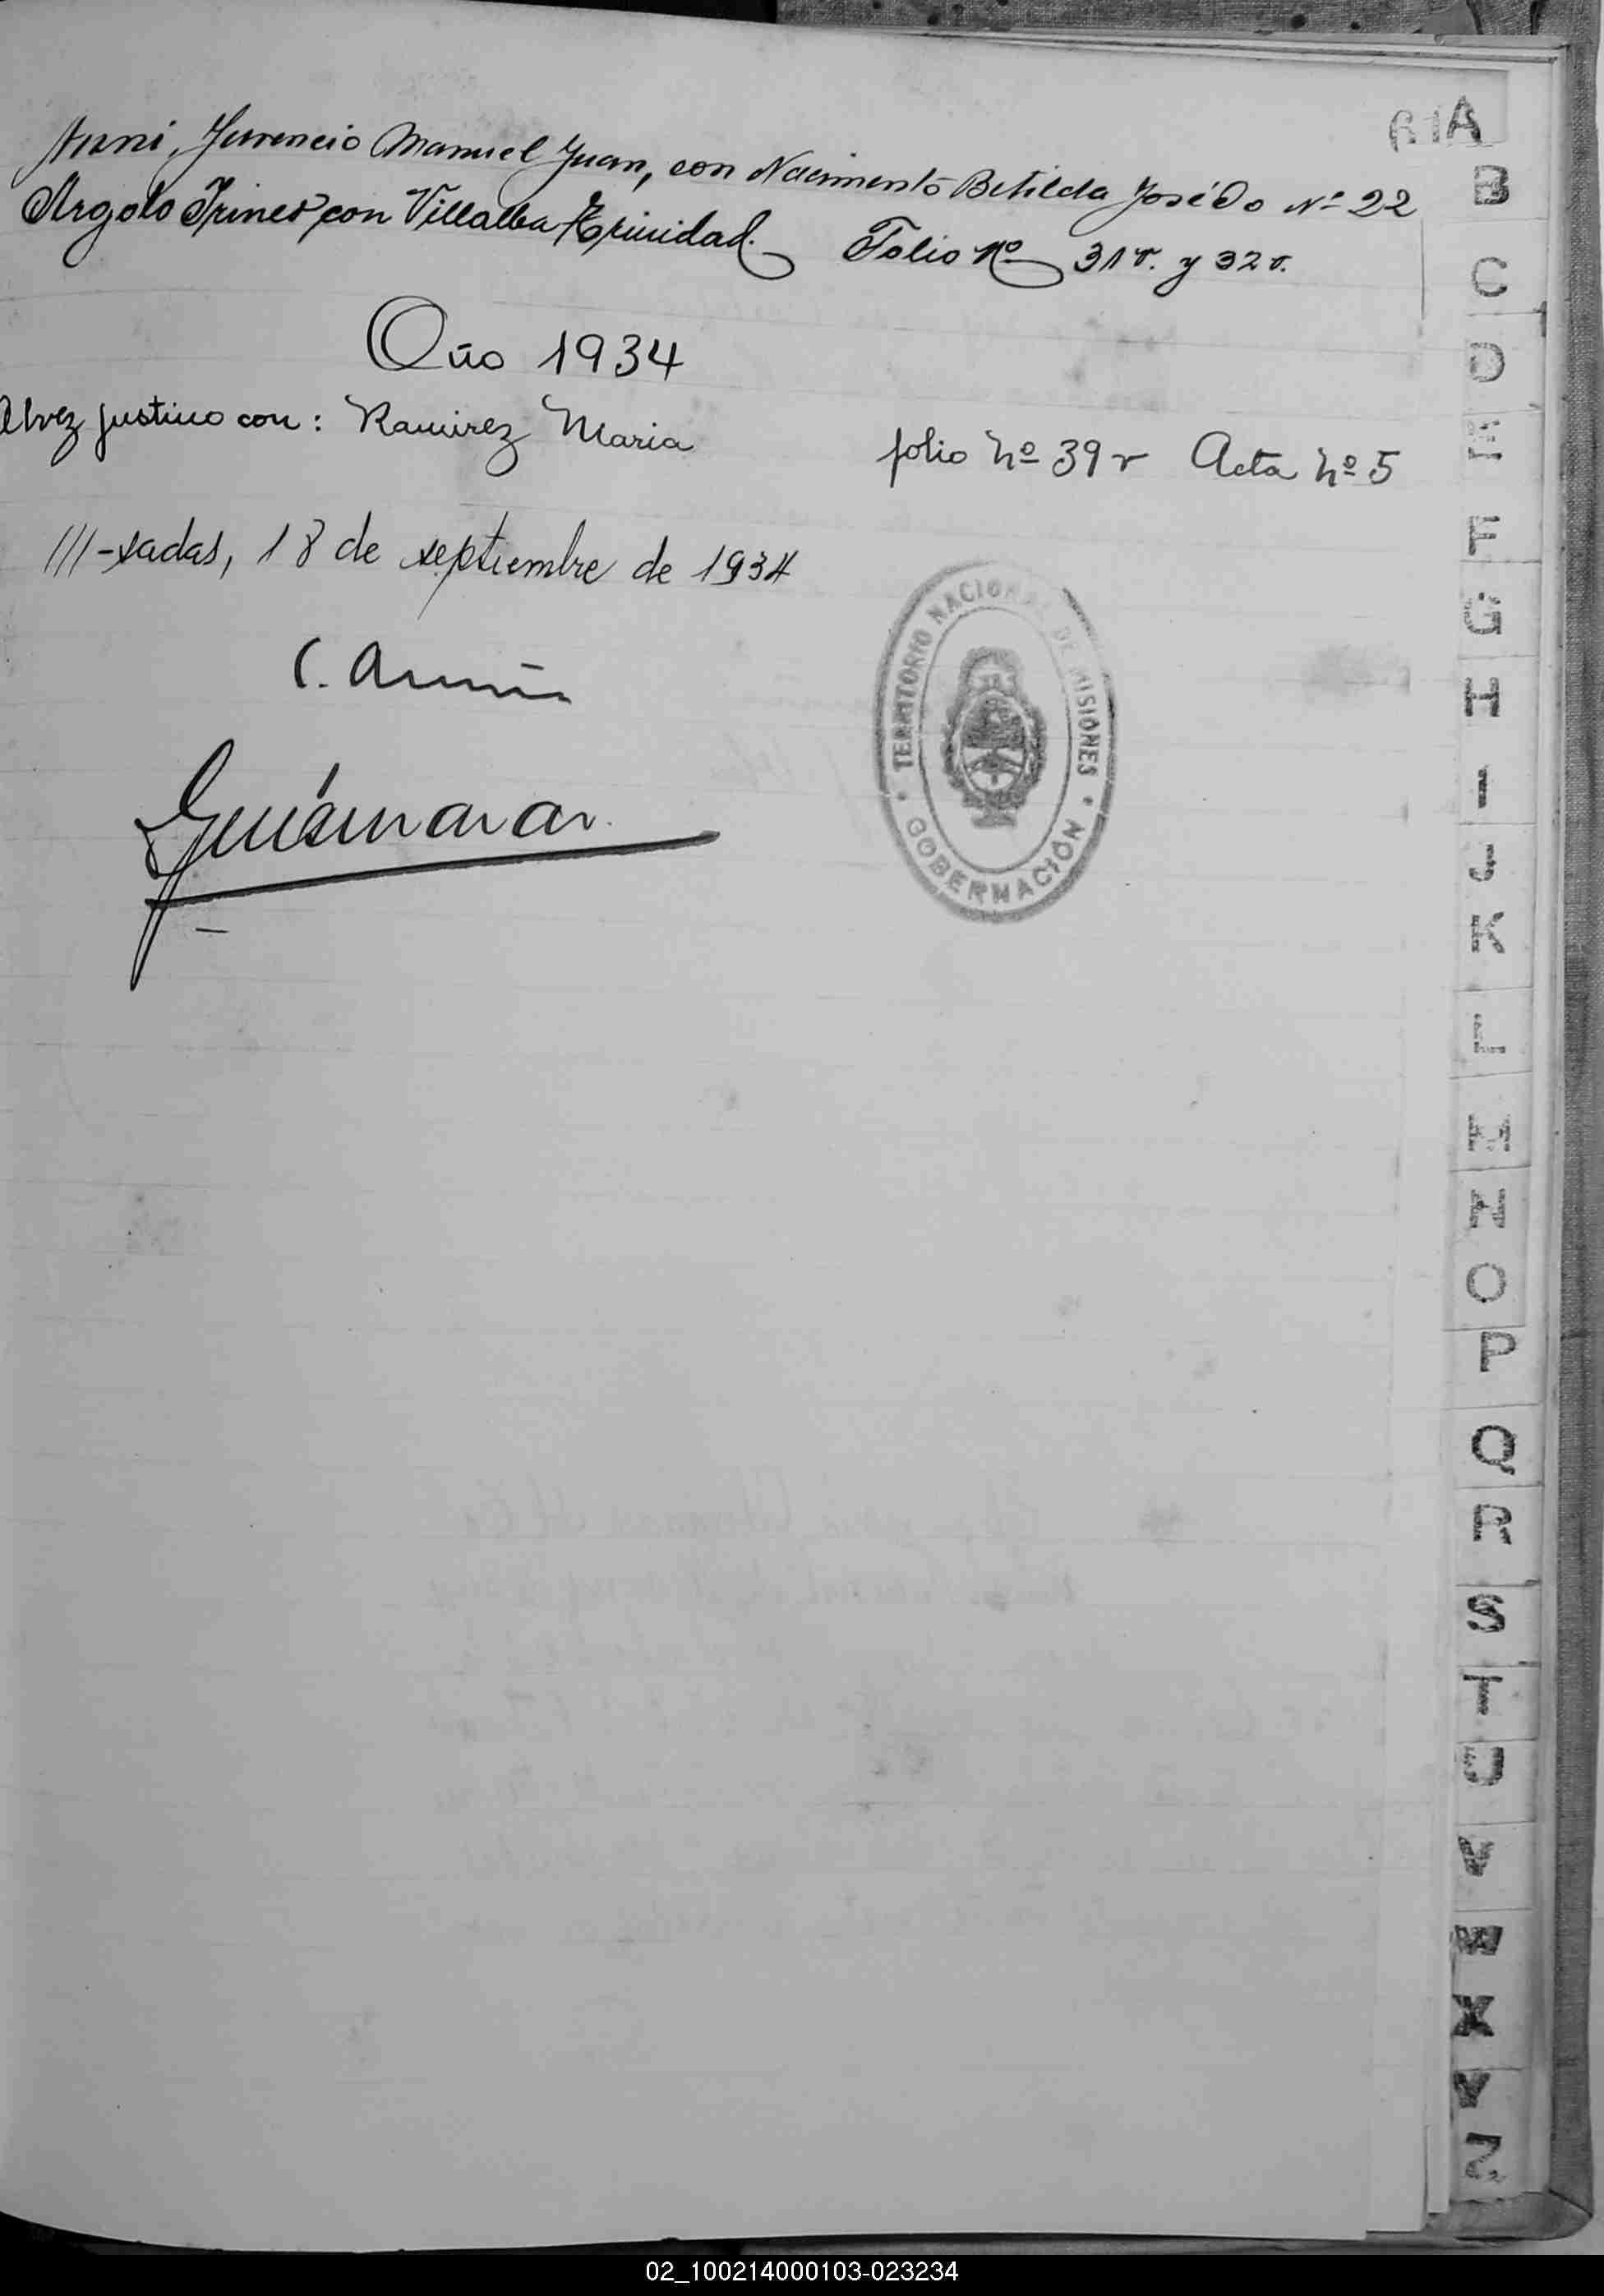 Manuel Juan, con Nacimento Betilda José Do Nº 22
Argolo Irineo con Villalba Trinidad. Folio Nº 31v. y 32v.
Año 1934
Alvez Justino con: Ramirez Maria folio Nº 39 v Acta Nº 5
///-sadas, 18 de septiembre de 1934
TERRITORIO NACIONAL DE MISIONES
GOBERNACIÓN
A
B
C
D
E
F
G
H
I
J
K
L
M
N
O
P
Q
R
S
T
U
V
W
X
Y
Z
02_100214000103-023234